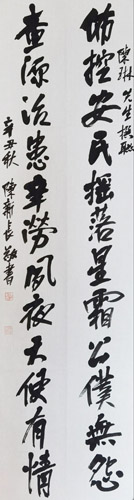 陳琳先生撰聯
防控安民摇落星霜公僕無怨
查源治患辛勞夙夜天使有情
辛丑秋 陳新長敬書